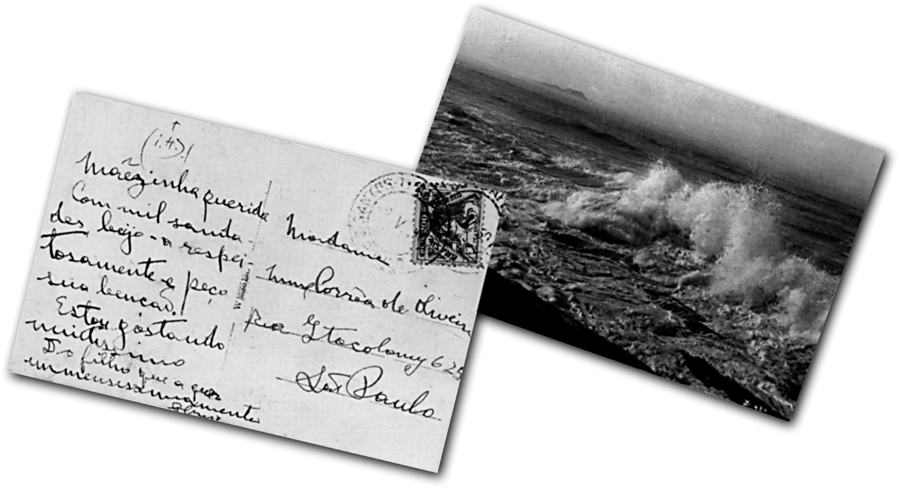 (i.H.)
Mãezinha querida
Com mil sauda-
des beijo-a respei-
tosamente e peço
sua benção.
Estou gostando
muitissimo
Do filho que a quer
immensissimamente
Madame
Corrêa de Oliveira
Rua Itacolomy 625
São Paulo
SANTOS